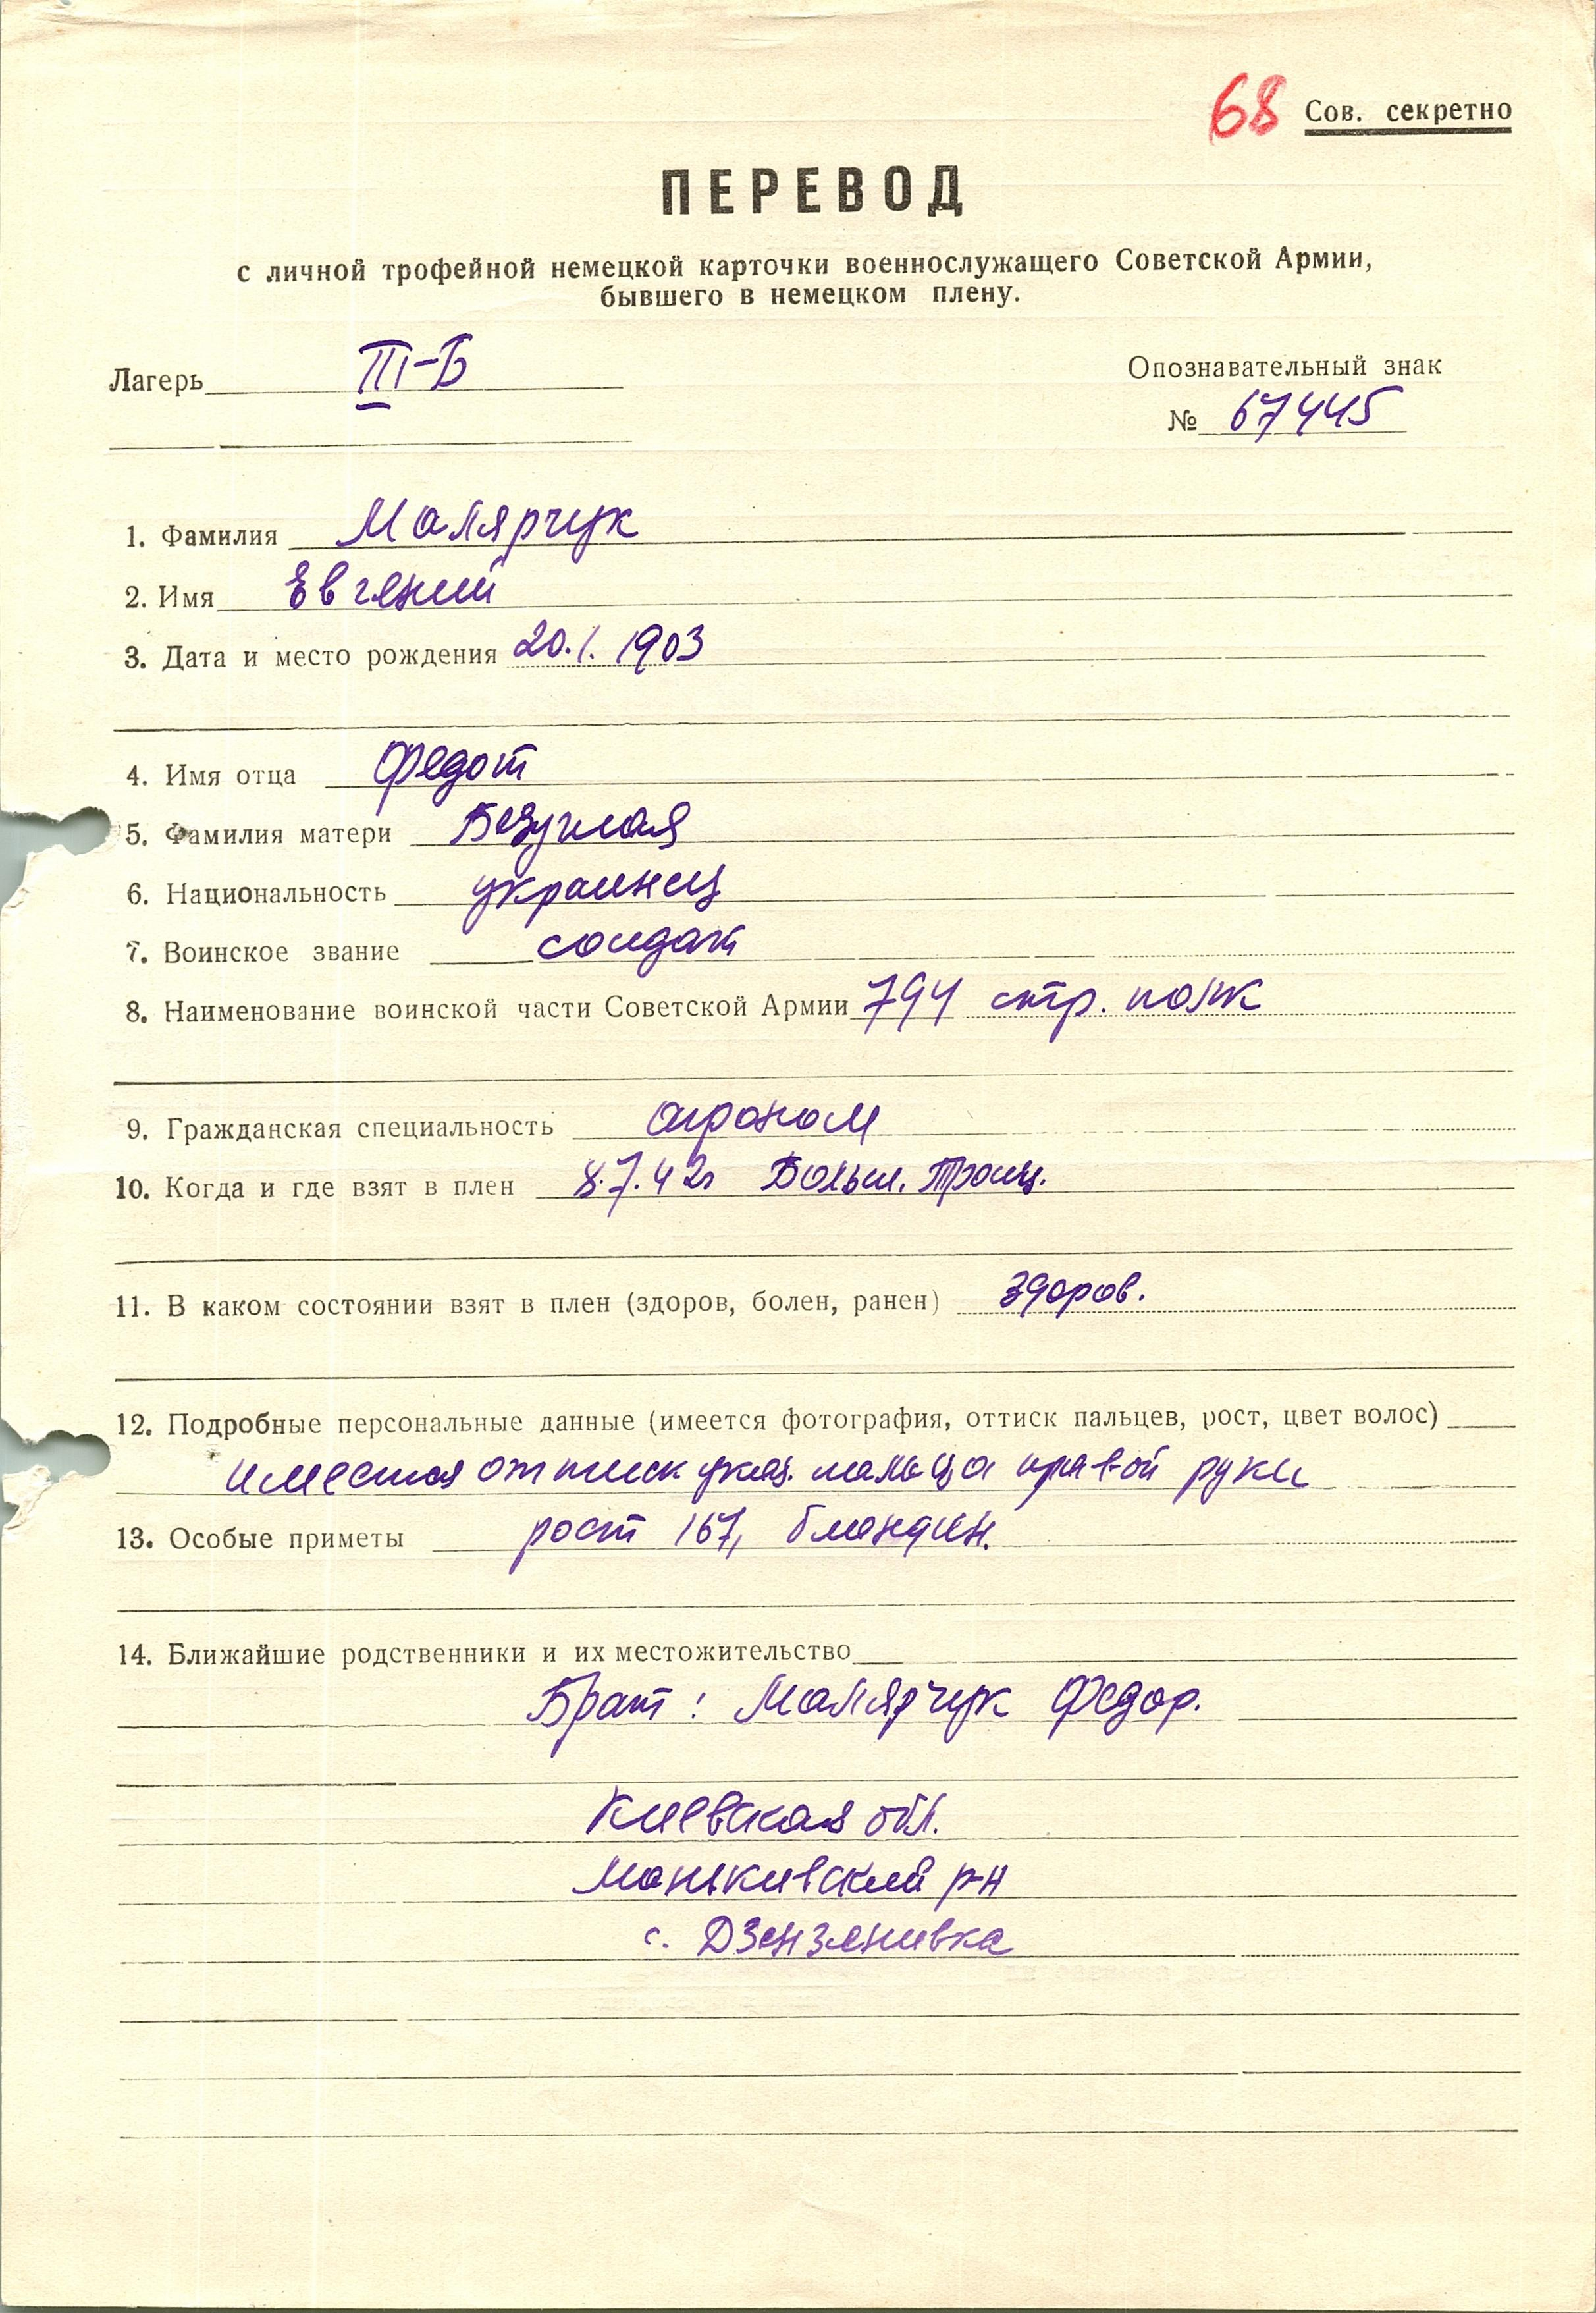 68 Сов. секретно
ПЕРЕВОД
с личной трофейной немецкой карточки военнослужащего Советской Армии,
бывшего в немецком плену.
Лагерь III-Б
Опознавательный знак
№ 67445
1. Фамилия Малярчук
2. Имя Евгений
3. Дата и место рождения 20.1.1903
4. Имя отца Федот
5. Фамилия матери Безуглая
6. Национальность украинец
7. Воинское звание солдат
8. Наименование воинской части Советской Армии 794 стр. полк
9. Гражданская специальность агроном
10. Когда и где взят в плен 8.7.42г Больш. Троиц.
11. В каком состоянии взят в плен (здоров, болен, ранен) здоров.
12. Подробные персональные данные (имеется фотография, оттиск пальцев, рост, цвет волос)
имеется оттиск указ. пальца правой руки
13. Особые приметы рост 167, блондин.
14. Ближайшие родственники и их местожительство
Брат: Малярчук Федор.
Киевская обл.
Маньkивский р-н
с. Дзензеливка